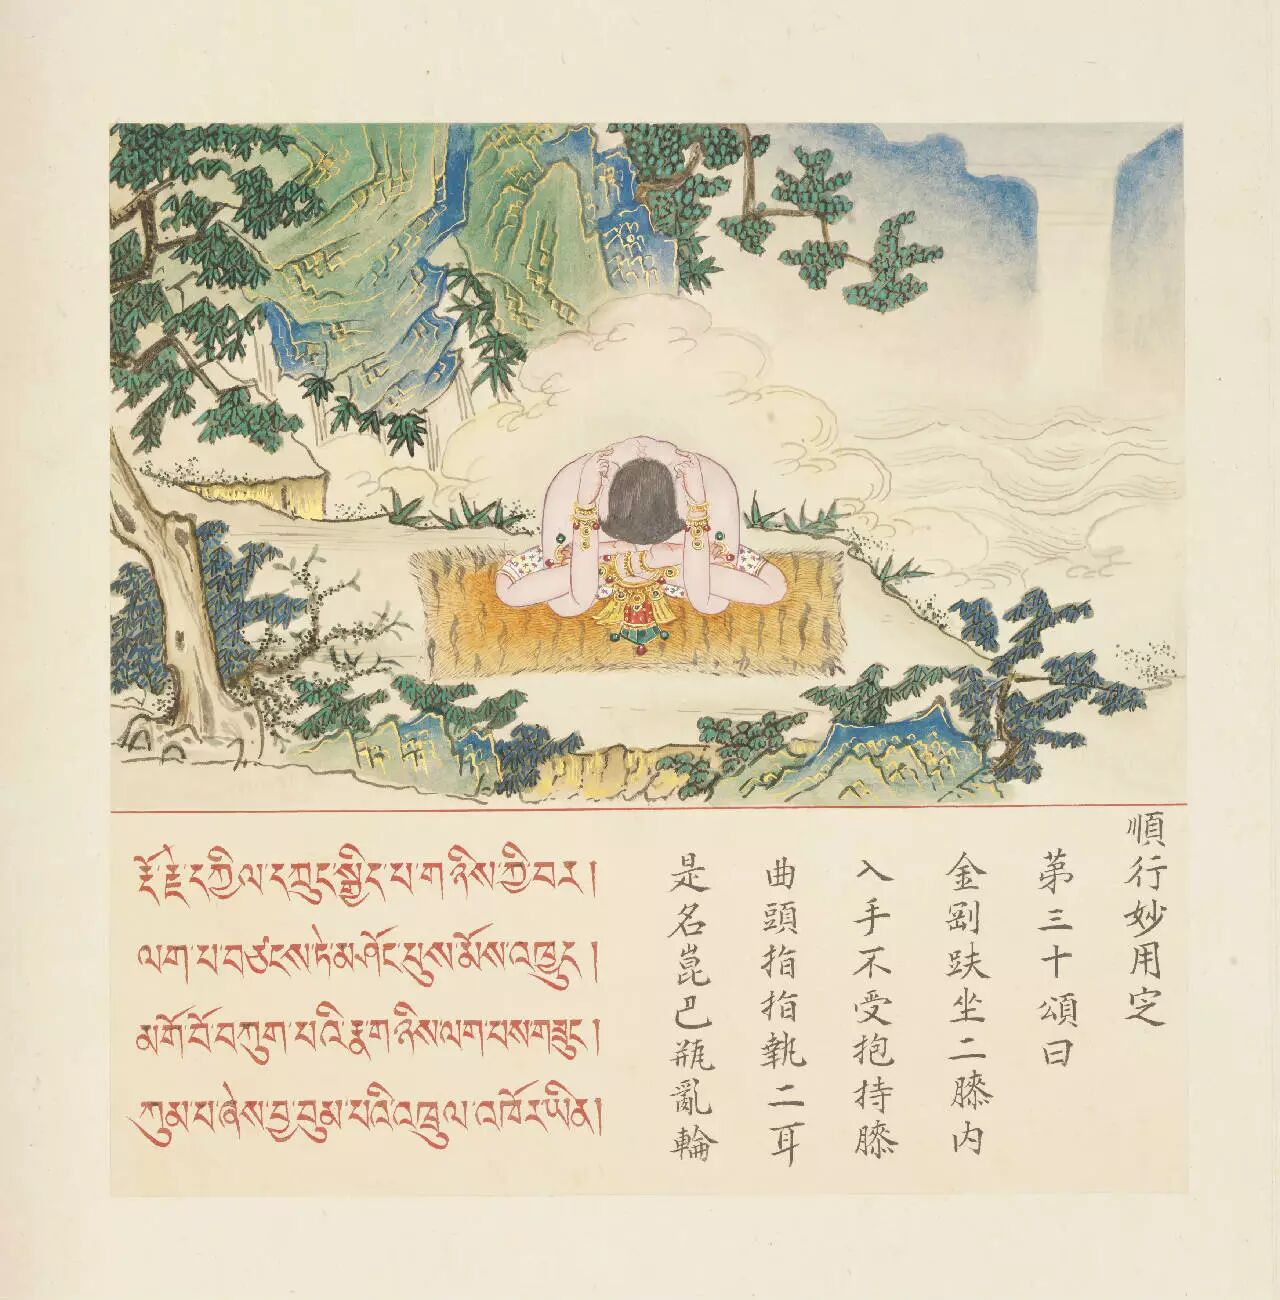 རྡོ་རྗེ་དཀྱིལ་དཀྲུང་སྒྱིད་པ་གཉིས་ཀྱི་བར །
ལག་པ་བཙངས་ཏེ་མ་ཤོང་པུས་མོས་འཁྱུད །
མགོ་བོ་བཀུག་པའི་རྣ་གཉིས་ལག་པས་གཟུང །
ཀུམ་པ་ཞེས་བྱ་བུམ་པའི་འཁྲུལ་འཁོར་ཡིན །
順行妙用㝎
苐三十頌曰
金剛趺坐二膝内
入手不受抱持膝
曲頭指指執二耳
是名崑巴瓶亂輪